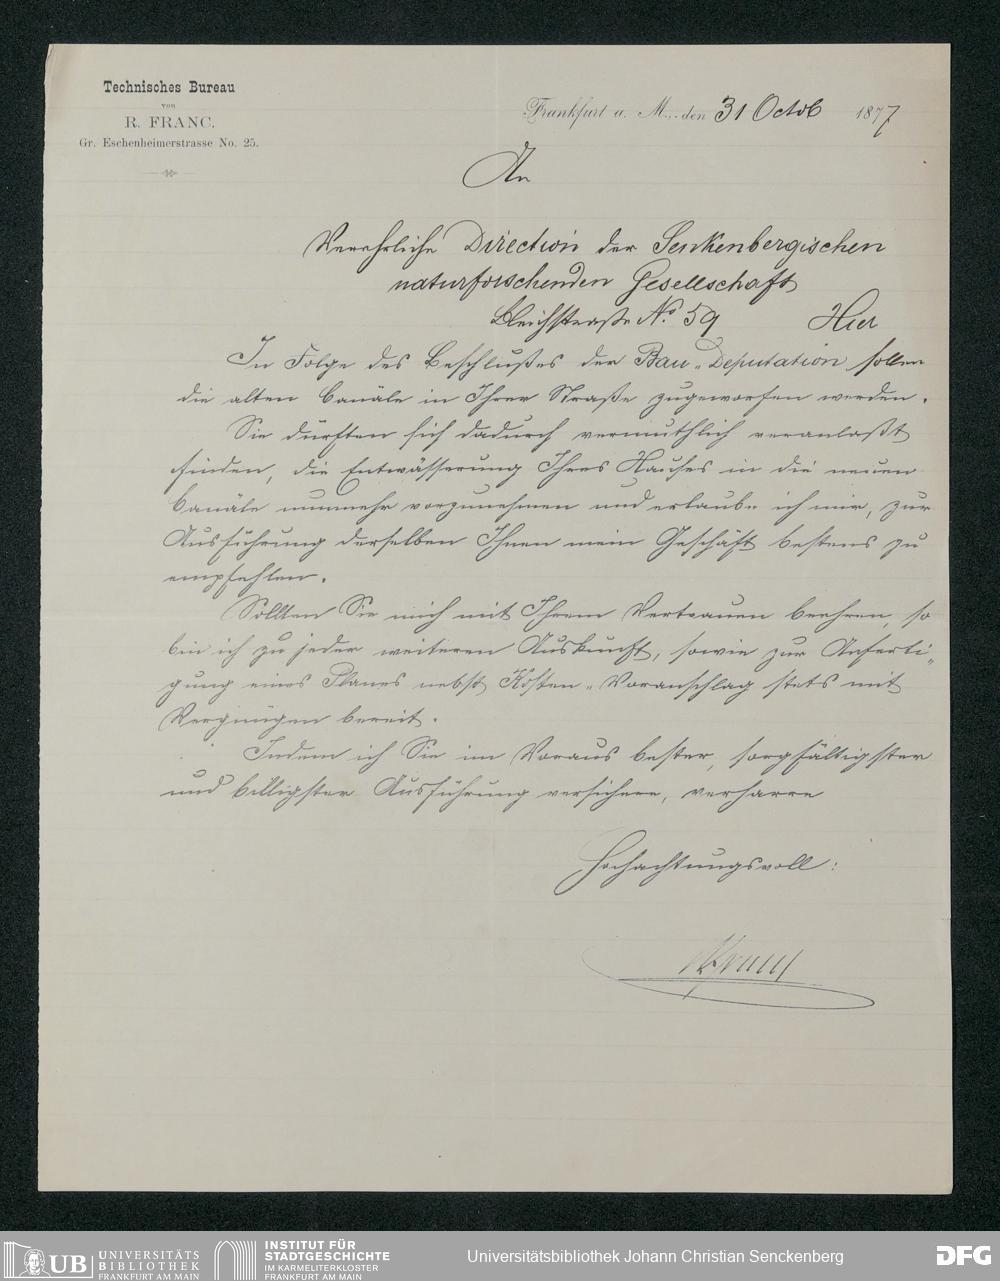 Technisches Bureau
von
R. FRANC.
Gr. Eschenheimerstrasse No. 25.
Frankfurt a. M., den 31 Octob 1877
An
Verehrliche Direction der Senkenbergischen
naturforschenden Gesellschaft
Bleichstraße No. 59 Hier
In Folge des Beschlußes der Bau-Deputation sollen
die alten Canäle in Ihrer Straße zugeworfen werden.
Sie dürften sich dadurch vermuthlich veranlaßt
finden, die Entwässerung Ihres Hauses in die neuen
Canäle nunmehr vorzunehmen und erlaube ich mir, zur
Ausführung derselben Ihnen mein Geschäft bestens zu
empfehlen.
Sollten Sie mich mit Ihrem Vertrauen beehren, so
bin ich zu jeder weiteren Auskunft, sowie zur Anferti-
gung eines Planes nebst Kosten-Voranschlag stets mit
Vergnügen bereit.
Indem ich Sie im Voraus bester, sorgfältigster
und billigster Ausführung versichere, verharre
Hochachtungsvoll:
R Franc
UB UNIVERSITÄTS
BIBLIOTHEK
FRANKFURT AM MAIN
INSTITUT FÜR
STADTGESCHICHTE
IM KARMELITERKLOSTER
FRANKFURT AM MAIN
Universitätsbibliothek Johann Christian Senckenberg
DFG